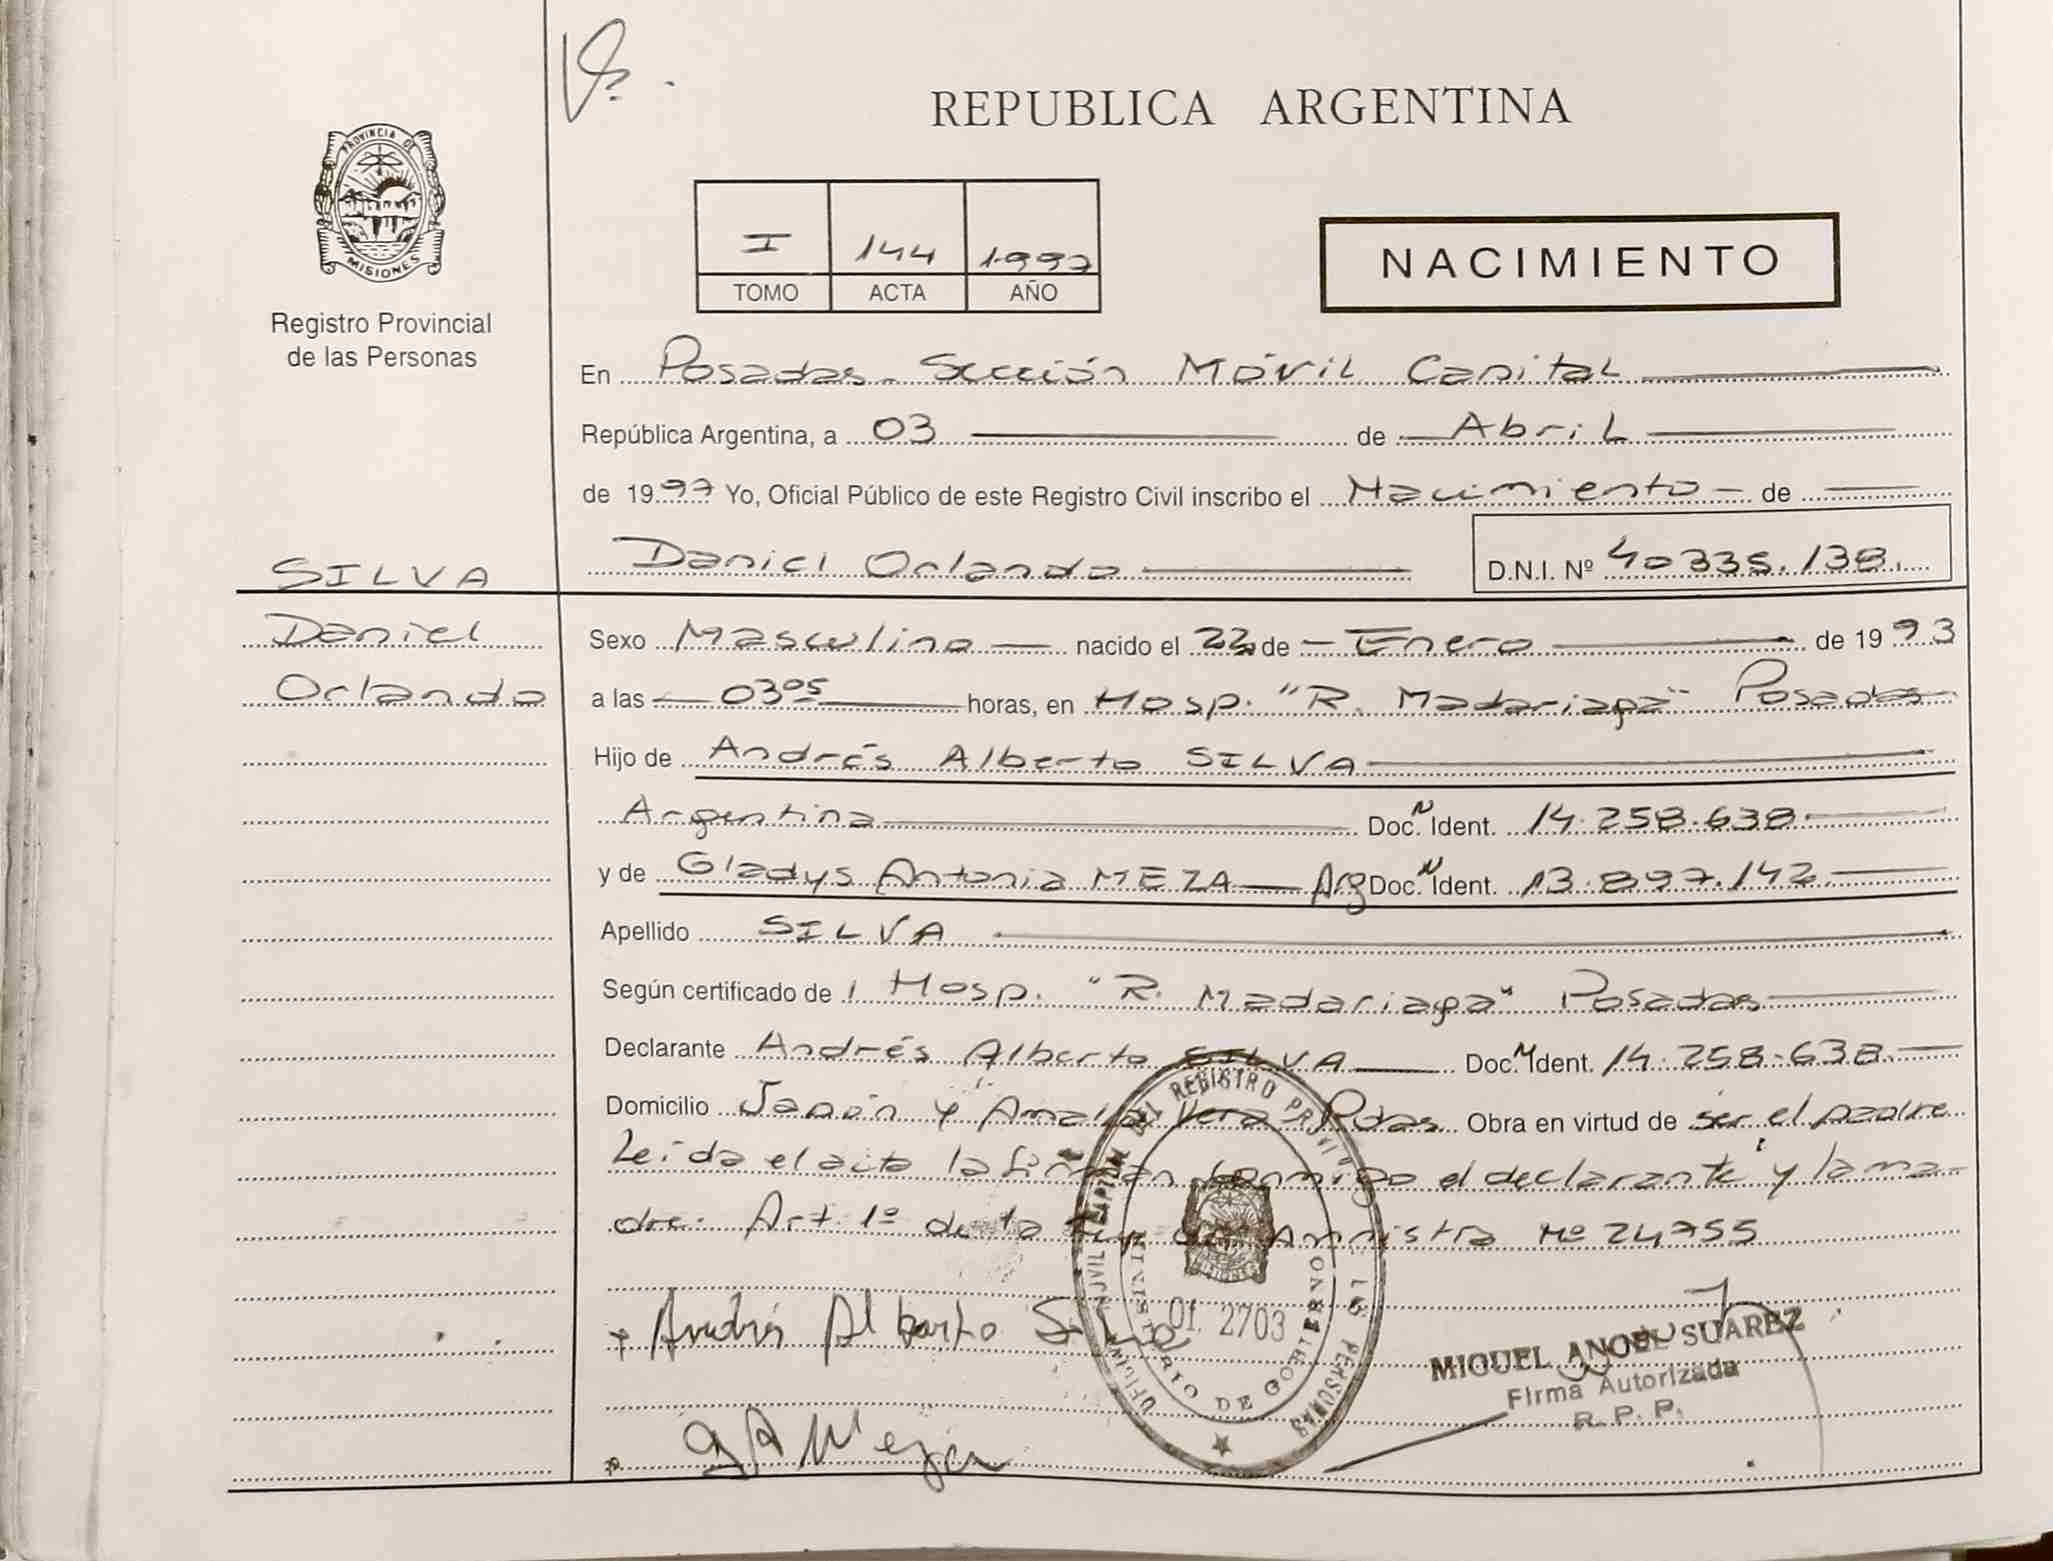 REPUBLICA ARGENTINA
PROVINCIA DE
MISIONES
Registro Provincial
de las Personas
I 144 1997
TOMO ACTA AÑO
NACIMIENTO
En Posadas - Sección Móvil Capital
República Argentina, a 03 de Abril
de 1997 Yo, Oficial Público de este Registro Civil inscribo el Nacimiento de
Daniel Orlando D.N.I. Nº 40335.138
SILVA
Daniel
Orlando
Sexo Masculino nacido el 22 de Enero de 1993
a las 03 05 horas, en Hosp. "R. Madariaga" Posadas
Hijo de Andrés Alberto SILVA
Argentina Doc. N Ident. 14.258.638
y de Gladys Antonia MEZA Arg Doc. N Ident. 13.897.142
Apellido SILVA
Según certificado de Hosp. "R. Madariaga" Posadas
Declarante Andrés Alberto SILVA Doc. N Ident. 14.258.638
Domicilio Japón y Amalia Vera Pdas Obra en virtud de ser el padre
Leida el acta la firman conmigo el declarante y la ma-
dre. Art. 1º de la Ley de Amnistia Nº 24755
Andrés Alberto Silva
G A Meza
DEL REGISTRO PROVINCIAL LAS PERSONAS
OFICINA MOVIL CAPITAL
MINISTERIO DE GOBIERNO
MISIONES
Of. 2703
MIGUEL ANGEL SUAREZ
Firma Autorizada
R. P. P.